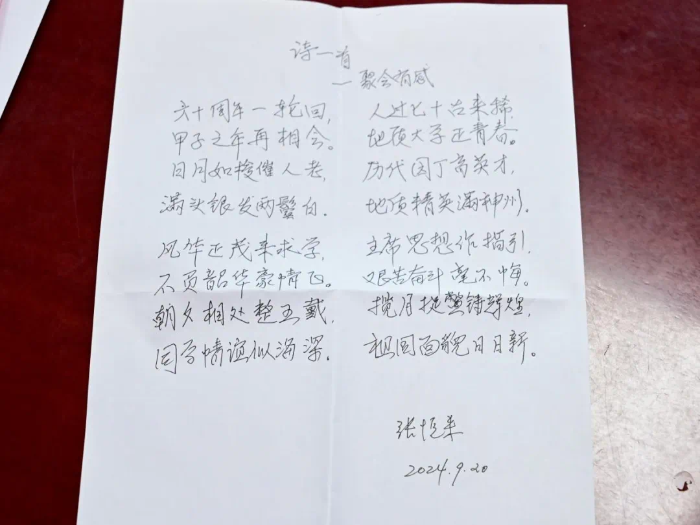 诗一首
— 聚会有感
六十周年一轮回,
甲子之年再相会。
日月如梭催人老,
满头银发两鬓白.
风华正茂来求学,
不负韶华豪情飞。
朝夕相处整五戴,
同学情谊似海深.
人过七十古来稀,
地质大学正青春。
历代园丁育英才,
地质精英满神州.
主席思想作指引,
艰苦奋斗毫不悔.
揽月捉鳖铸辉煌,
祖国面貌日日新。
张恒
2024.9.20